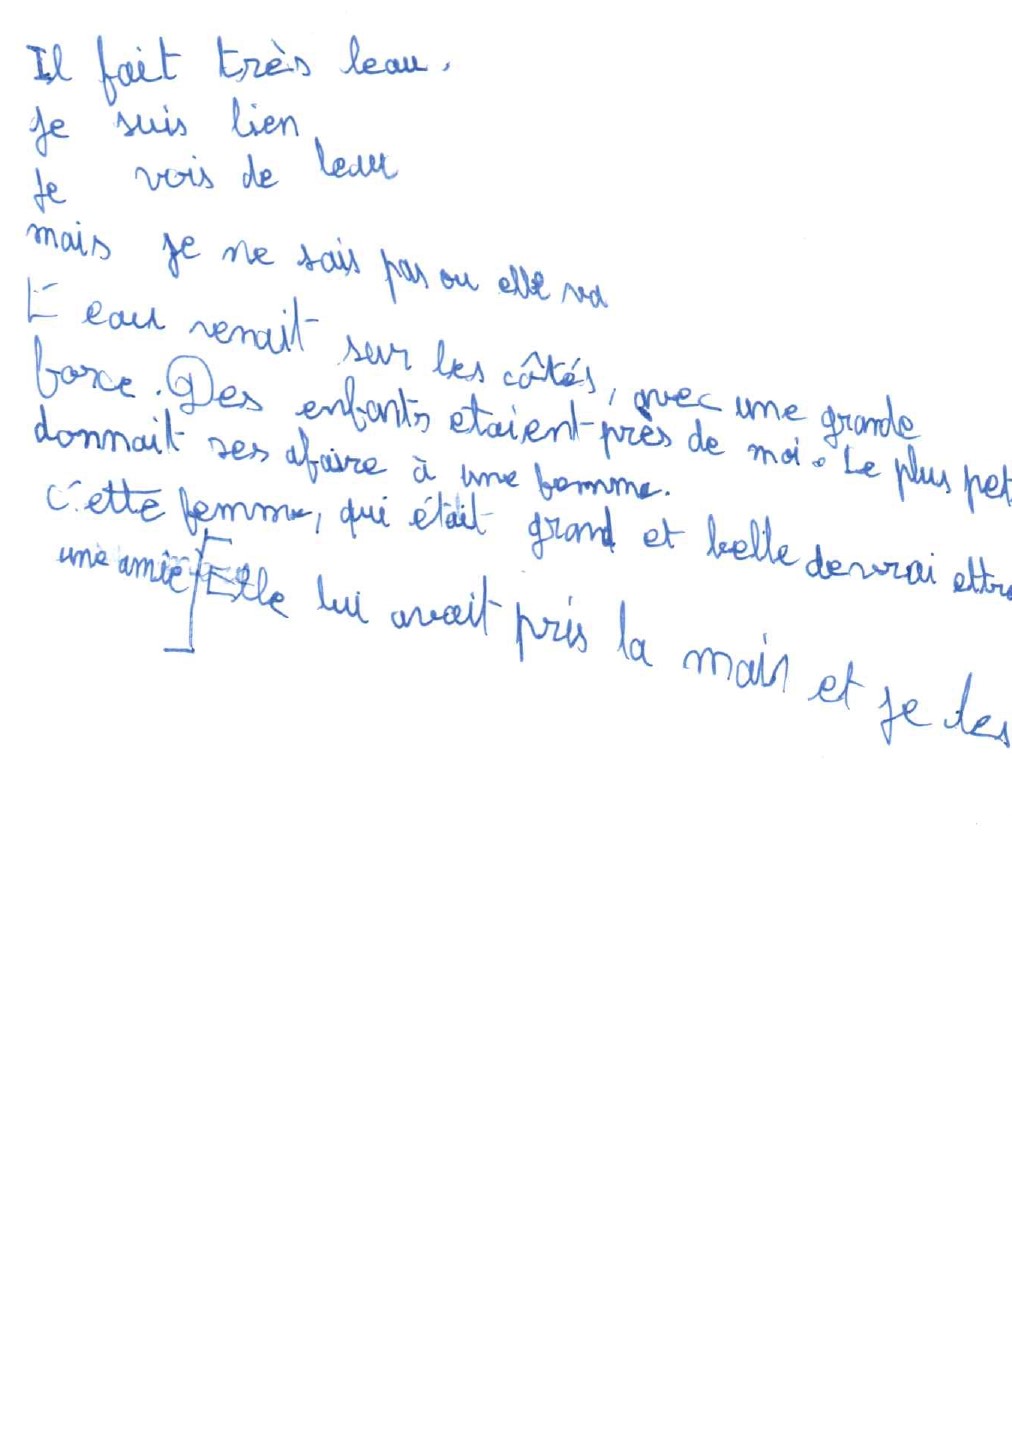 Il fait très beau.
je suis bien
je vois de leau
mais je ne sais pas ou elle va
L'eau venait sur les côtés, avec une grande
force. Des enfants etaient près de moi. Le plus pet
donnait ses afaire à une femme.
Cette femme, qui était grand et belle devrai ettre
une amie Elle lui avait pris la main et je les